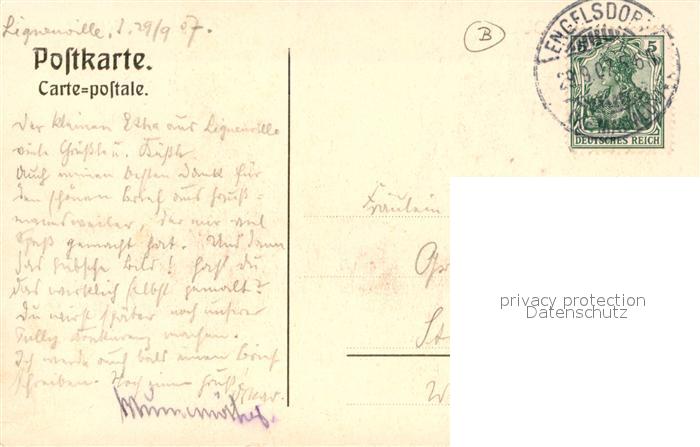 Ligneuville, d. 29/9 07.
Postkarte.
Carte=postale.
Der kleinen Etha aus Ligneuville
viele Grüße u. Küße.
Auch meinen besten Dank für
den schönen Brief aus
weiler, der mir viel
Spaß gemacht hat. Und dann
das hübsche Bild! Hast du
das wirklich selbst gemalt?
Du wirst später noch unserer
Konkurrenz machen.
Ich werde auch bald einen Brief
schreiben. Noch einen Gruß!
B
ENGELSDORF
29.9.07
5
DEUTSCHES REICH
Fräulein
W
privacy protection
Datenschutz